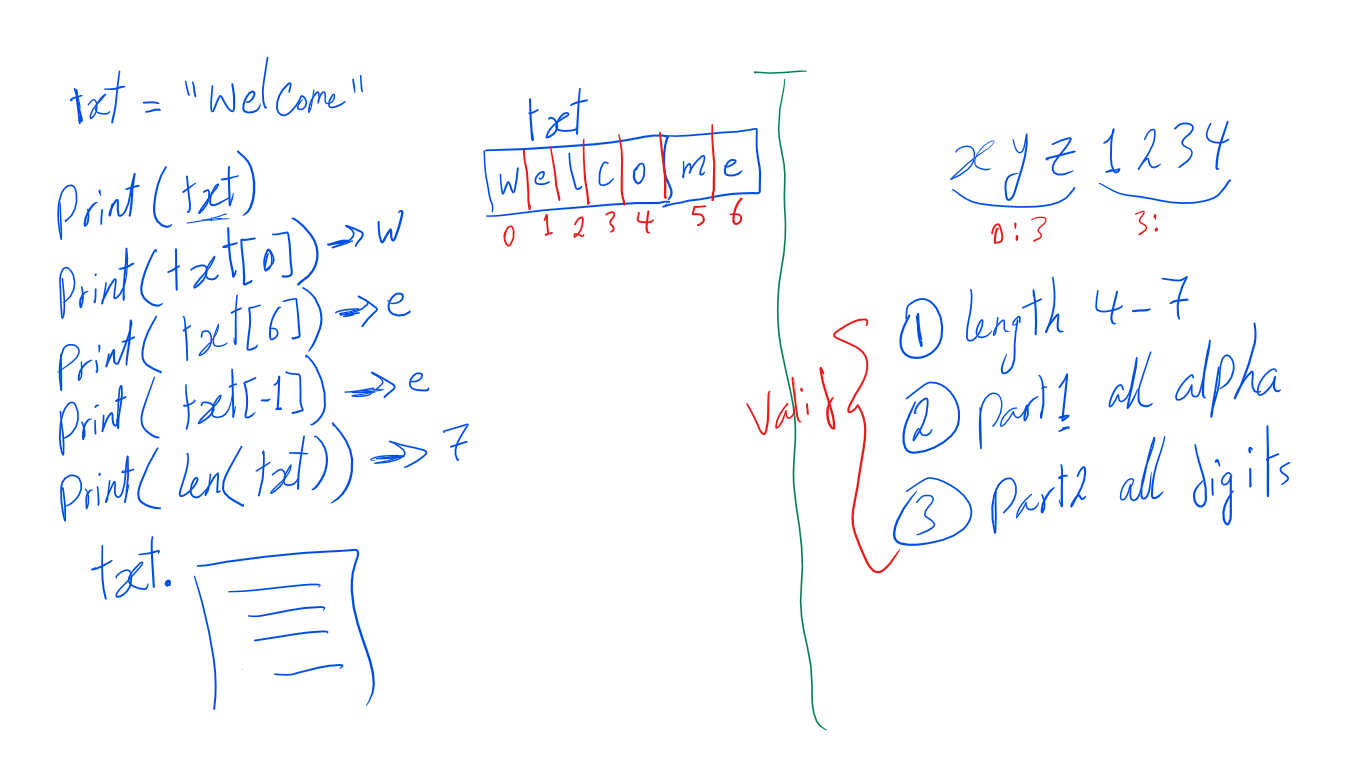 txt = "Welcome"
Print(txt)
Print(txt[0]) → W
Print(txt[6]) → e
Print(txt[-1]) → e
Print(len(txt)) → 7
txt.
txt
W e l c o m e
0 1 2 3 4 5 6
x y z 1 2 3 4
0:3 3:
Valid
① length 4-7
② part1 all alpha
③ part2 all digits